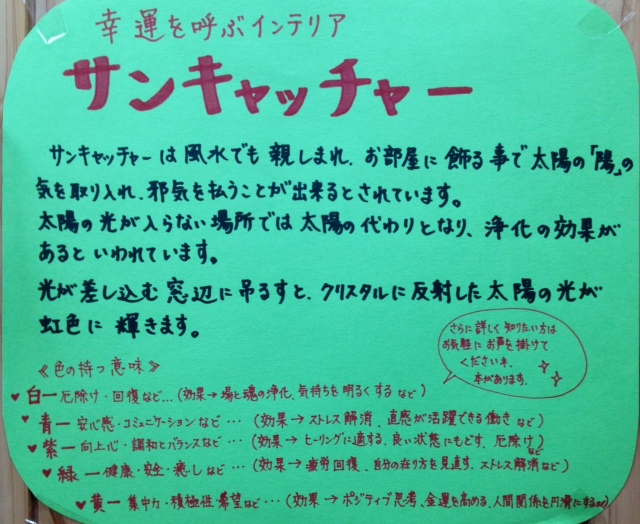 幸運を呼ぶインテリア
サンキャッチャー
サンキャッチャーは風水でも親しまれ、お部屋に飾る事で太陽の「陽」の
気を取り入れ、邪気を払うことが出来るとされています。
太陽の光が入らない場所では太陽の代わりとなり、浄化の効果が
あるといわれています。
光が差し込む窓辺に吊るすと、クリスタルに反射した太陽の光が
虹色に輝きます。
さらに詳しく知りたい方は
お気軽にお声を掛けて
くださいネ。
本があります。
《色の持つ意味》
♥白ー厄除け・回復など…(効果→場と魂の浄化、気持ちを明るくするなど)
♥青ー安心感・コミュニケーションなど…(効果→ストレス解消、直感が活躍できる働きなど)
♥紫ー向上心・調和とバランスなど…(効果→ヒーリングに適する、良い状態にもどす、厄除けなど)
♥緑ー健康・安全・癒しなど…(効果→疲労回復、自分の在り方を見直す、ストレス解消など)
♥黄ー集中力・積極性・希望など…(効果→ポジティブ思考、金運を高める、人間関係を円滑にするなど)